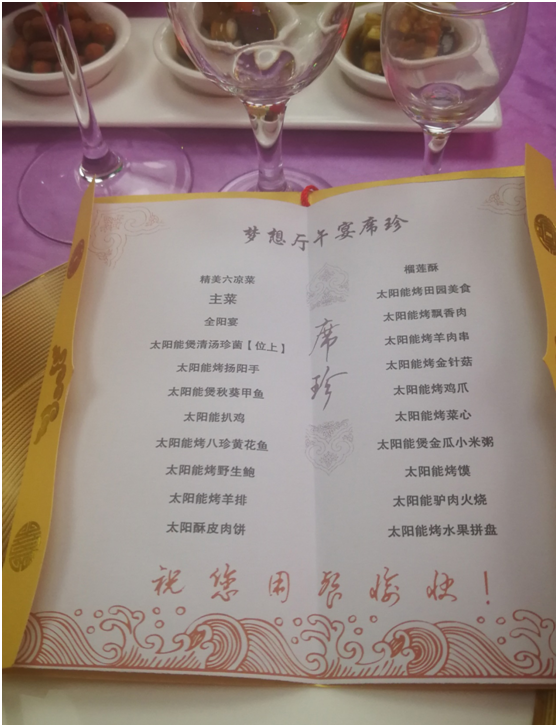 梦想厅午宴席珍
精美六凉菜
主菜
全阳宴
太阳能煲清汤珍菌【位上】
太阳能烤扬阳手
太阳能煲秋葵甲鱼
太阳能扒鸡
太阳能烤八珍黄花鱼
太阳能烤野生鲍
太阳能烤羊排
太阳酥皮肉饼
席珍
榴莲酥
太阳能烤田园美食
太阳能烤飘香肉
太阳能烤羊肉串
太阳能烤金针菇
太阳能烤鸡爪
太阳能烤菜心
太阳能煲金瓜小米粥
太阳能烤馍
太阳能驴肉火烧
太阳能烤水果拼盘
祝您用餐愉快！